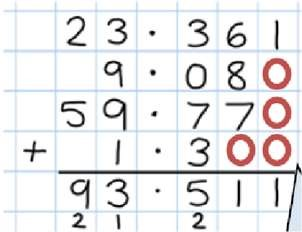 23.361
9.080
59.770
+ 1.300
93.511
21 2